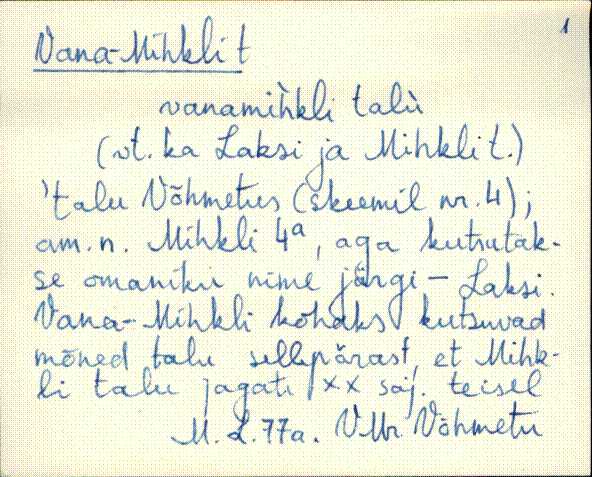 1
Vana-Mihkli t
vanamìhkli talù
(vt. ka Laksi ja Mihkli t.)
'talu Võhmetus (skeemil nr. 4);
am. n. Mihkli 4ª, aga kutsutak-
se omaniku nime järgi – Laksi.
Vana-Mihkli kohaks kutsuvad
mõned talu sellepärast, et Mihk-
li talu jagati XX saj. teisel
M. L. 77a. VMr Võhmetu